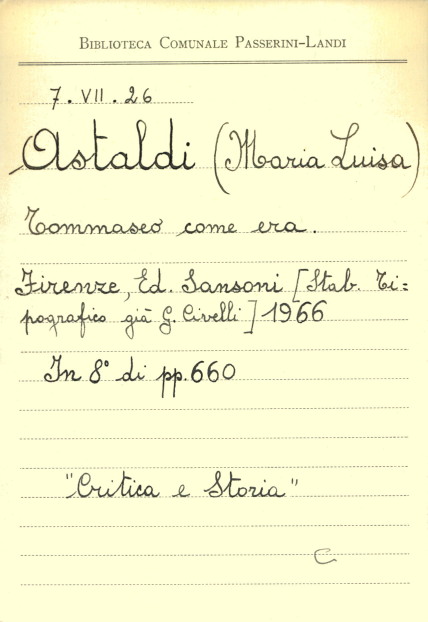 Biblioteca Comunale Passerini-Landi
7. VII. 26
Astaldi (Maria Luisa)
Tommaseo come era.
Firenze, Ed. Sansoni [Stab. Ti=
pografico già G. Civelli] 1966
In 8° di pp. 660
"Critica e Storia"
C